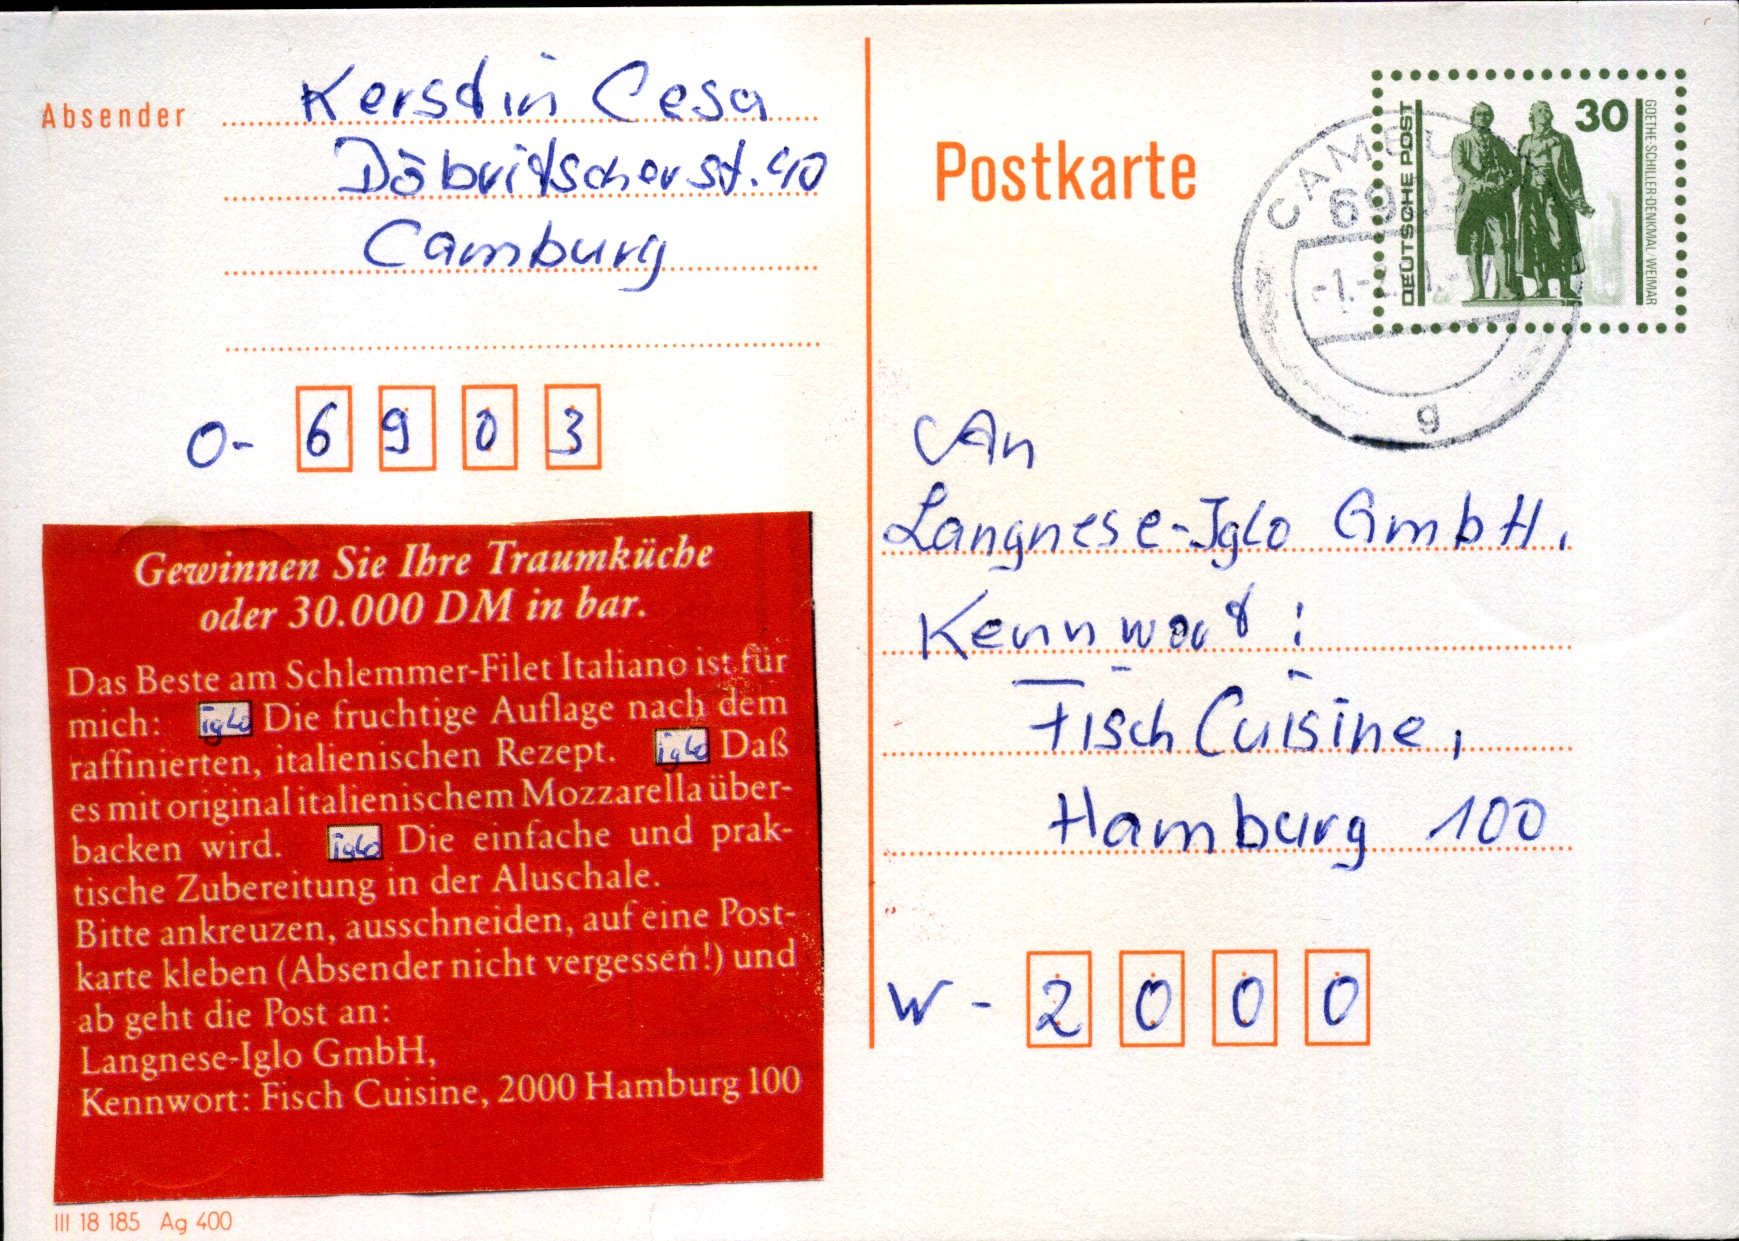 Absender
Kerstin Cesa
Döbritscherst. 40
Camburg
O- 6 9 0 3
Gewinnen Sie Ihre Traumküche
oder 30.000 DM in bar.
Das Beste am Schlemmer-Filet Italiano ist für
mich: iglo Die fruchtige Auflage nach dem
raffinierten, italienischen Rezept. iglo Daß
es mit original italienischem Mozzarella über-
backen wird. iglo Die einfache und prak-
tische Zubereitung in der Aluschale.
Bitte ankreuzen, ausschneiden, auf eine Post-
karte kleben (Absender nicht vergessen!) und
ab geht die Post an:
Langnese-Iglo GmbH,
Kennwort: Fisch Cuisine, 2000 Hamburg 100
III 18 185 Ag 400
Postkarte
DEUTSCHE POST
30
GOETHE-SCHILLER-DENKMAL/WEIMAR
g
An
Langnese-Iglo GmbH,
Kennwort:
Fisch Cuisine,
Hamburg 100
W - 2 0 0 0